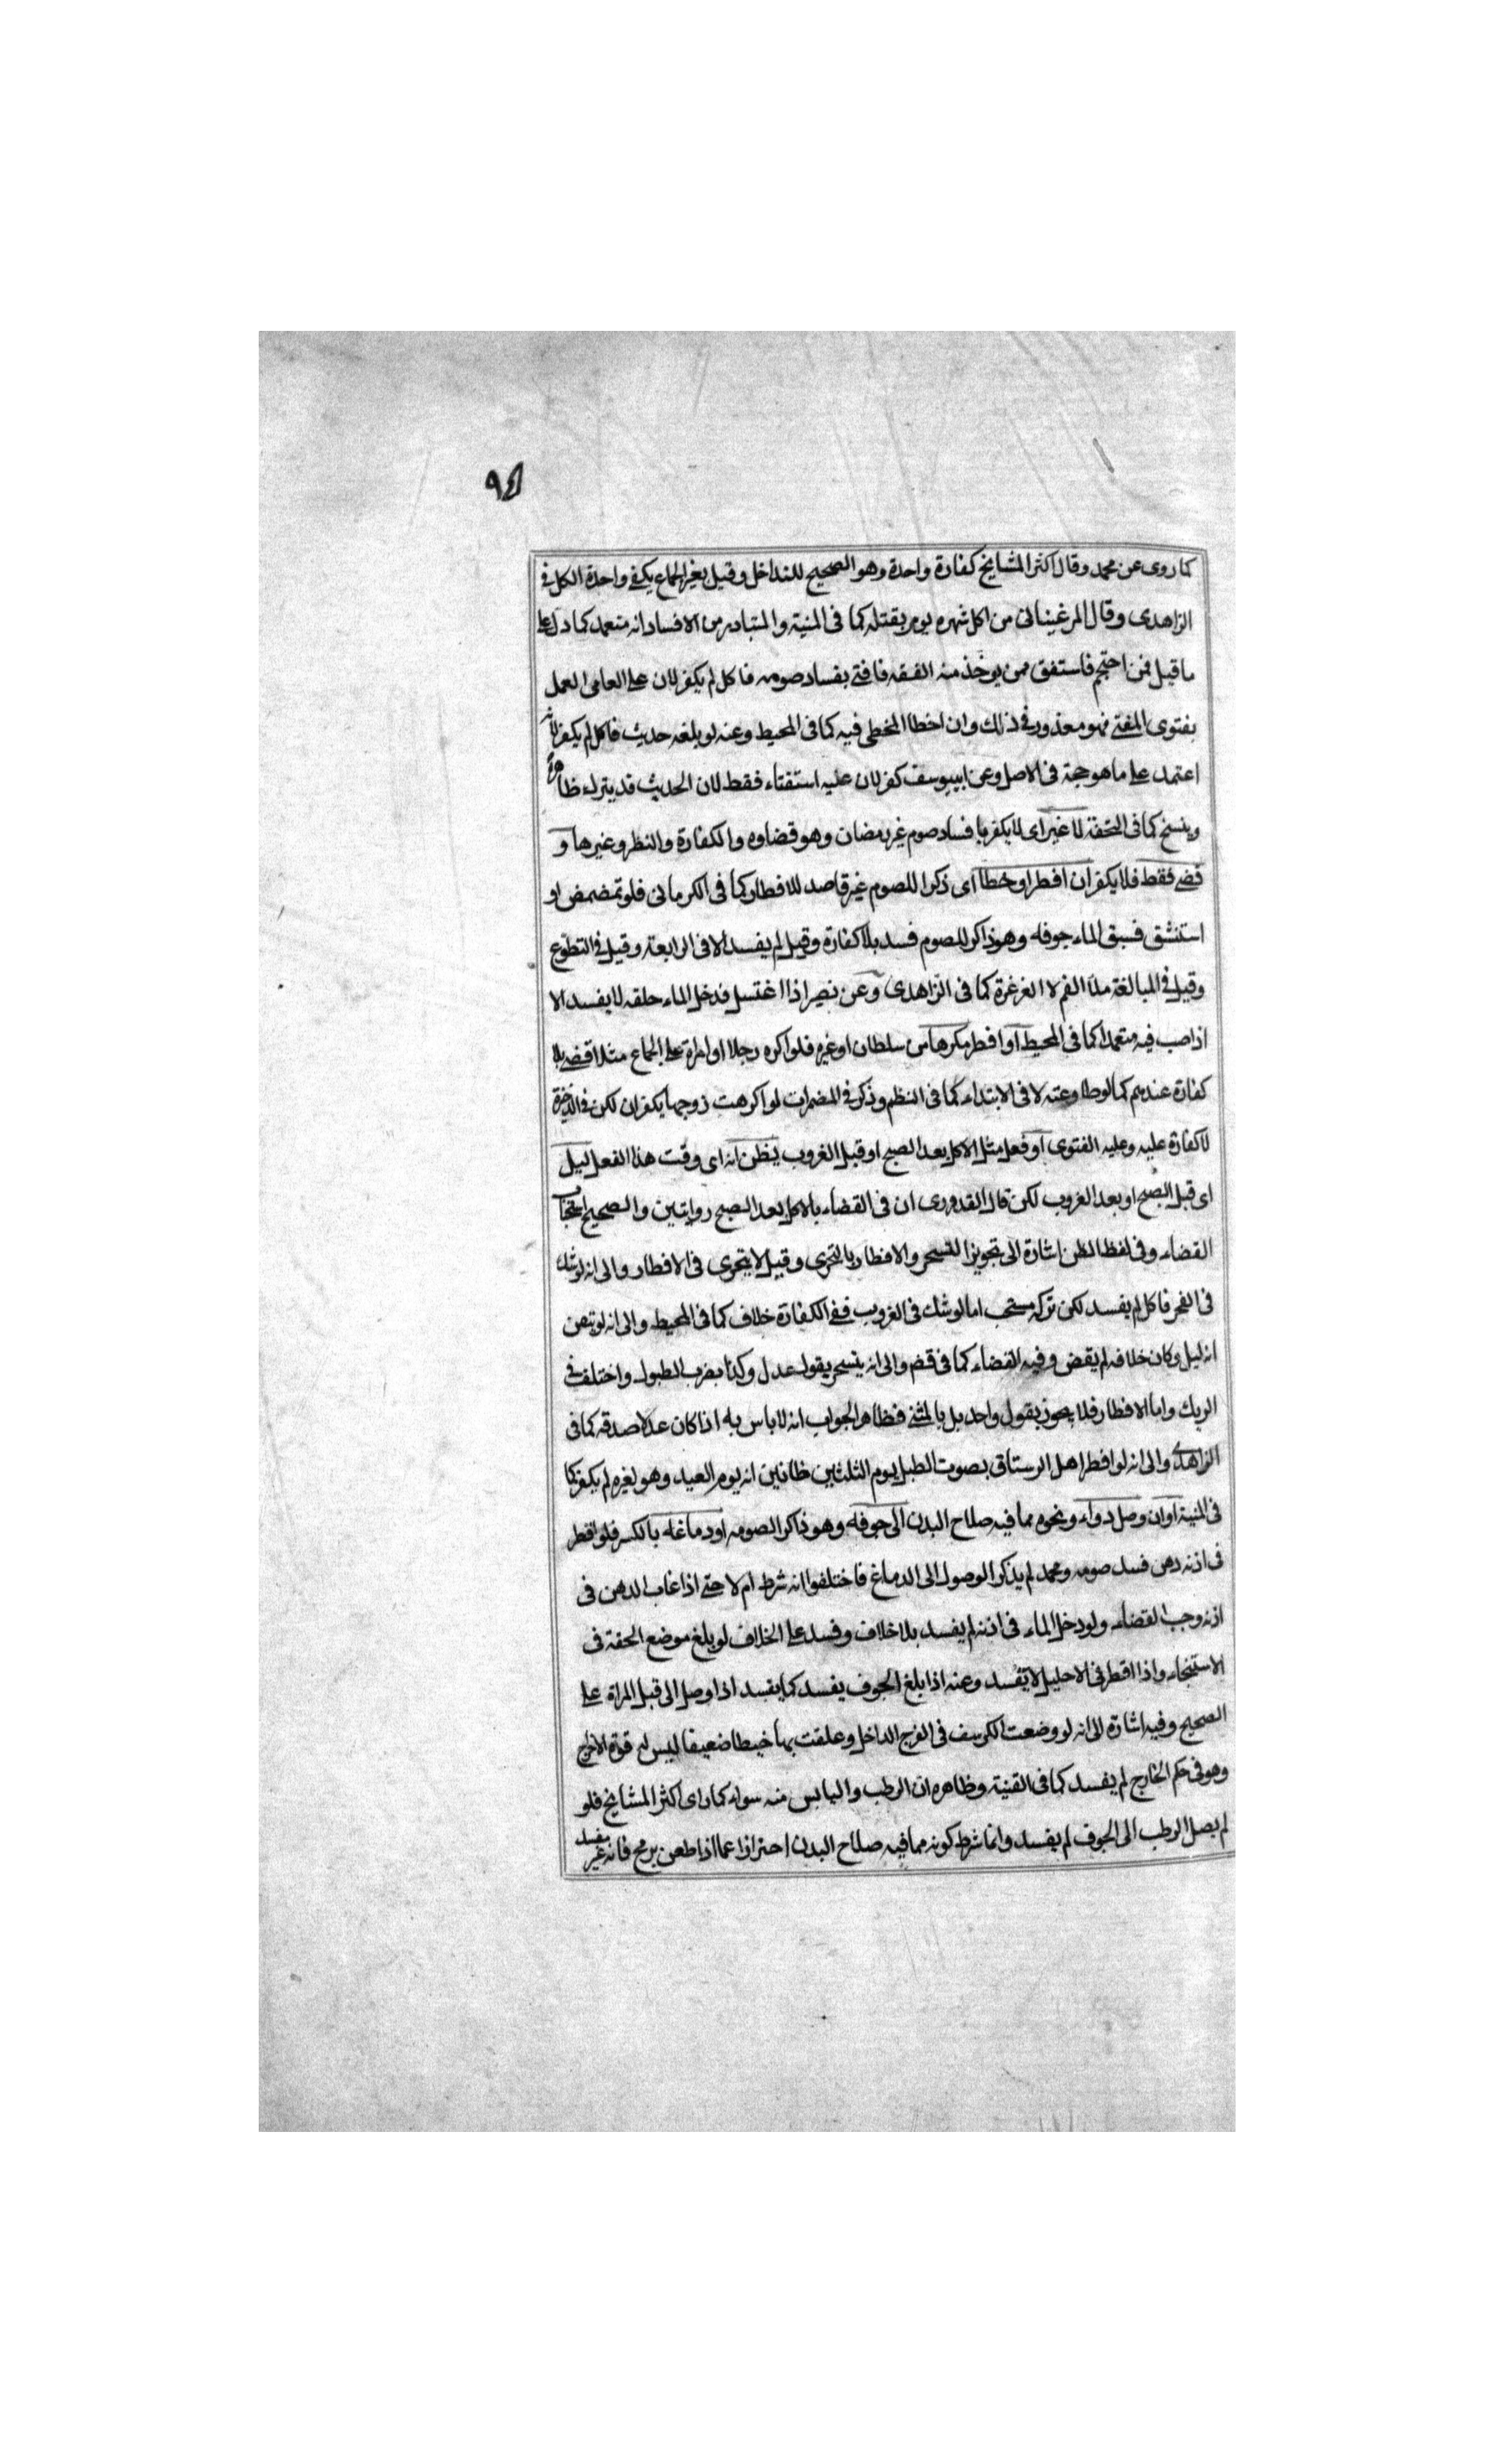 ٩٤
كما روى عن محمد وقال اكثر المشايخ كفارة واحدة وهو الصحيح للتداخل وقيل بغير الجماع يكفي واحدة الكل في
الزاهدى وقال المرغينانى من اكل شهره يومر بقتله كما فى المنية والمتبادر من الافساد انه متعمد كما دل على
ما قيل فمن احتجم فاستفتى ممن يوخذ منه الفقه فافتى بفساد صومه فاكل لم يكفر لان على العامى العمل
بفتوى المفتى فهو معذور في ذلك وان اخطا المخطى فيه كما فى المحيط وعنه لو بلغه حديث فاكل لم يكفر لانه
اعتمد على ما هو حجة فى الاصل وعن ابييوسف كفر لان عليه استفتاء فقط لان الحديث قد يترك ظاهره
وينسخ كما فى التحفة لا غير اى لا يكفر بافساد صوم غير رمضان وهو قضاوه والكفارة والنظر وغيرها و
قضى فقط فلا يكفر ان افطر او خطأ اى ذكرا للصوم غير قاصد للافطار كما فى الكرمانى فلو تمضمض او
استنشق فسبق الماء جوفه وهو ذاكر للصوم فسد بلا كفارة وقيل لم يفسد الا فى الرابعة وقيل في التطوع
وقيل في المبالغة ملأ الفم لا الغرغرة كما فى الزاهدى وعن نصير اذا اغتسل فدخل الماء حلقه لا يفسد الا
اذا صب فيه متعمدا كما فى المحيط او افطر مكرها من سلطان او غيره فلو اكره رجلا او امراة على الجماع مثلا قضى بلا
كفارة عندهم كما لو طاوعته لا فى الابتداء كما فى النظم وذكر في المضمرات لو اكرهت زوجها يكفران لكن في الذخيرة
لا كفارة عليه وعليه الفتوى او فعل مثل الاكل بعد الصبح او قبل الغروب يظن انه اى وقت هذا الفعل ليل
اى قبل الصبح او بعد الغروب لكن قال القدورى ان فى القضاء بالاكل بعد الصبح روايتين والصحيح استحباب
القضاء وفى لفظ الظن اشارة الى تجويز التسحر والافطار بالتحرى وقيل لا يتحرى فى الافطار والى انه لو شك
فى الفجر فاكل لم يفسد لكن تركه مستحب اما لو شك فى الغروب ففى الكفارة خلاف كما فى المحيط والى انه لو تيقن
انه ليل وكان خلافه لم يقض وفيه القضاء كما فى قضم والى انه يتسحر بقول عدل وكذا بضرب الطبول واختلف في
الريك واما الافطار فلا يجوز بقول واحد بل بالمثنى فظاهر الجواب انه لا باس به اذا كان عدلا صدقه كما فى
الزاهدى والى انه لو افطر اهل الرستاق بصوت الطبل يوم الثلثين ظانين انه يوم العيد وهو لغيره لم يكفر كما
فى المنية او ان وصل دواء ونحوه مما فيه صلاح البدن الى جوفه وهو ذاكر الصومه او دماغه بالكسر فلو اقطر
فى اذنه دهن فسد صومه ومحمد لم يذكر الوصول الى الدماغ فاختلفوا انه شرط ام لا حتى اذا غاب الدهن فى
اذنه وجب القضاء ولو دخل الماء فى اذنه لم يفسد بلا خلاف وفسد على الخلاف لو بلغ موضع الحقنة فى
الاستنجاء واذا اقطر فى الاحليل لا يفسد وعنه اذا بلغ الجوف يفسد كما يفسد اذا وصل الى قبل المراة على
الصحيح وفيه اشارة الى انه لو وضعت الكرسف فى الفرج الداخل وعلقت بها خيطا ضعيفا ليس له قوة الاخراج
وهو فى حكم الخارج لم يفسد كما فى القنية وظاهره ان الرطب واليابس منه سواء كما راى اكثر المشايخ فلو
لم يصل الرطب الى الجوف لم يفسد وانما شرط كونه مما فيه صلاح البدن احترازا عما اذا طعن برمح فانه غير مفسد